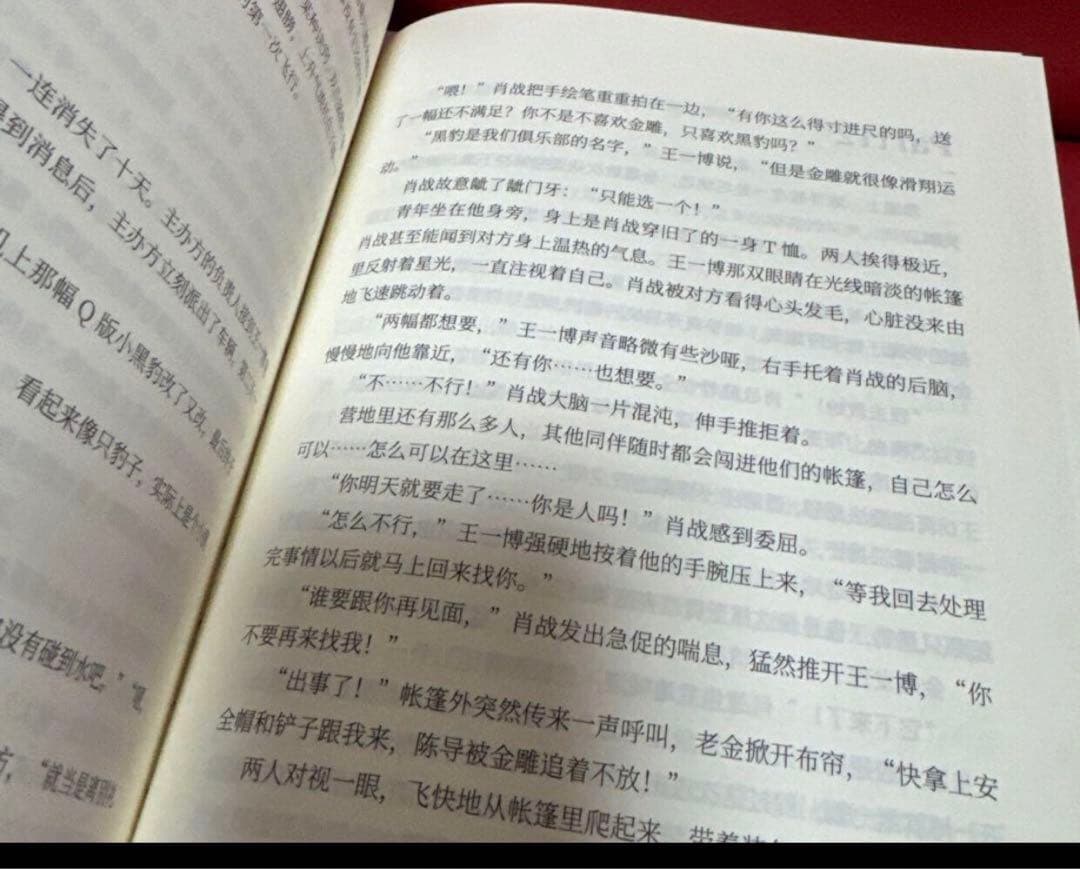 某种
翅膀，上升气流
的第一次飞行。
一连消失了十天。主办方的负责人
得到消息后，主办方立刻派出了车辆，第二
机上那幅Q版小黑豹改了又改，最后
看起来像只豹子，实际上是个小
没有碰到水吧。”
方，“就当是离别
“喂！”肖战把手绘笔重重拍在一边，“有你这么得寸进尺的吗，送
了一幅还不满足？你不是不喜欢金雕，只喜欢黑豹吗？”
“黑豹是我们俱乐部的名字，”王一博说，“但是金雕就很像滑翔运
动。”
肖战故意龇了龇门牙：“只能选一个！”
青年坐在他身旁，身上是肖战穿旧了的一身T恤。两人挨得极近，
肖战甚至能闻到对方身上温热的气息。王一博那双眼睛在光线暗淡的帐篷
里反射着星光，一直注视着自己。肖战被对方看得心头发毛，心脏没来由
地飞速跳动着。
“两幅都想要，”王一博声音略微有些沙哑，右手托着肖战的后脑，
慢慢地向他靠近，“还有你……也想要。”
“不……不行！”肖战大脑一片混沌，伸手推拒着。
营地里还有那么多人，其他同伴随时都会闯进他们的帐篷，自己怎么
可以……怎么可以在这里……
“你明天就要走了……你是人吗！”肖战感到委屈。
“怎么不行，”王一博强硬地按着他的手腕压上来，“等我回去处理
完事情以后就马上回来找你。”
“谁要跟你再见面，”肖战发出急促的喘息，猛然推开王一博，“你
不要再来找我！”
“出事了！”帐篷外突然传来一声呼叫，老金掀开布帘，“快拿上安
全帽和铲子跟我来，陈导被金雕追着不放！”
两人对视一眼，飞快地从帐篷里爬起来，带着装